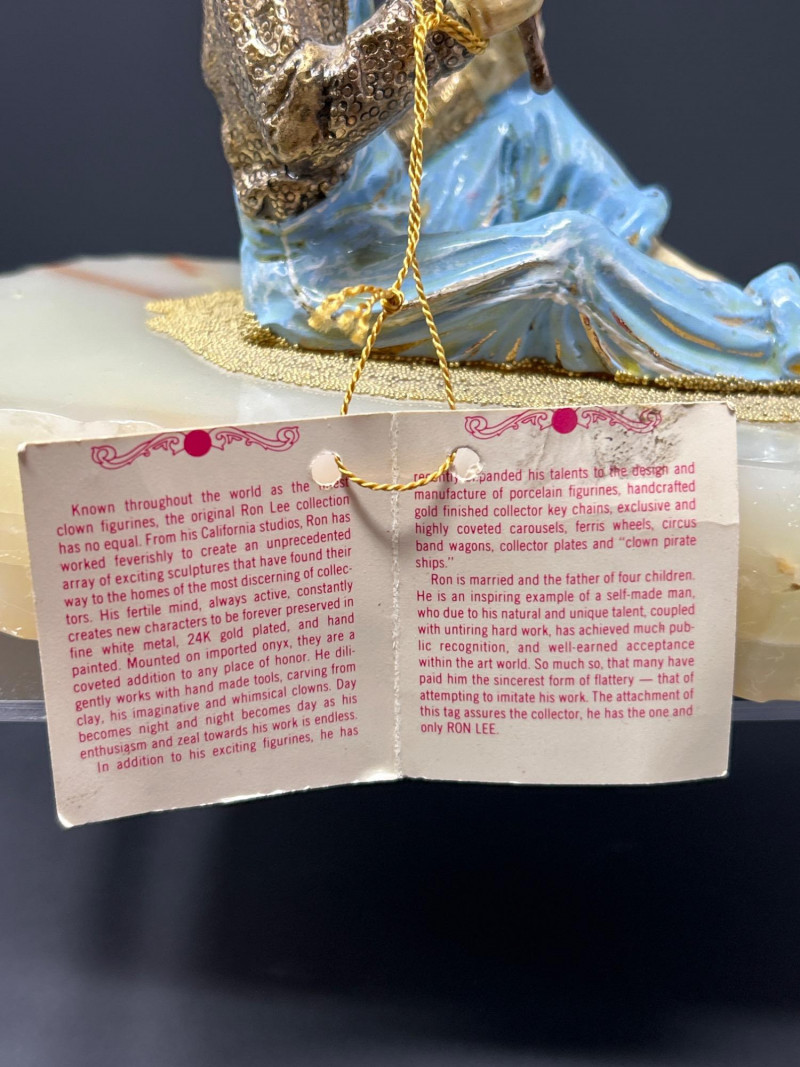 Known throughout the world as the finest
clown figurines, the original Ron Lee collection
has no equal. From his California studios, Ron has
worked feverishly to create an unprecedented
array of exciting sculptures that have found their
way to the homes of the most discerning of collec-
tors. His fertile mind, always active, constantly
creates new characters to be forever preserved in
fine white metal, 24K gold plated, and hand
painted. Mounted on imported onyx, they are a
coveted addition to any place of honor. He dili-
gently works with hand made tools, carving from
clay, his imaginative and whimsical clowns. Day
becomes night and night becomes day as his
enthusiasm and zeal towards his work is endless.
In addition to his exciting figurines, he has
recently expanded his talents to the design and
manufacture of porcelain figurines, handcrafted
gold finished collector key chains, exclusive and
highly coveted carousels, ferris wheels, circus
band wagons, collector plates and "clown pirate
ships."
Ron is married and the father of four children.
He is an inspiring example of a self-made man,
who due to his natural and unique talent, coupled
with untiring hard work, has achieved much pub-
lic recognition, and well-earned acceptance
within the art world. So much so, that many have
paid him the sincerest form of flattery — that of
attempting to imitate his work. The attachment of
this tag assures the collector, he has the one and
only RON LEE.